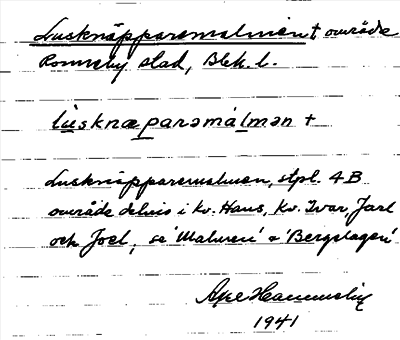 Lusknäpparemalmen † område
Ronneby stad, Blek. l.
lùsknæparəmálmən †
Lusknäpparemalmen, stpl. 4B
område delvis i kv. Hans, Kv. Ivar, Jarl
och Joel, se 'Malmen' o 'Bergslagen'
Åke Hammelin
1941